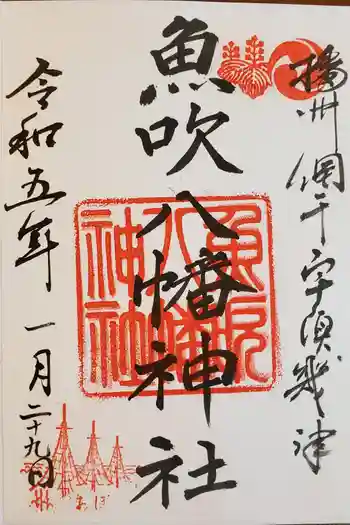 播州 網干 宇須幾津
魚吹八幡神社
魚吹八幡神社
令和五年 一月二十九日